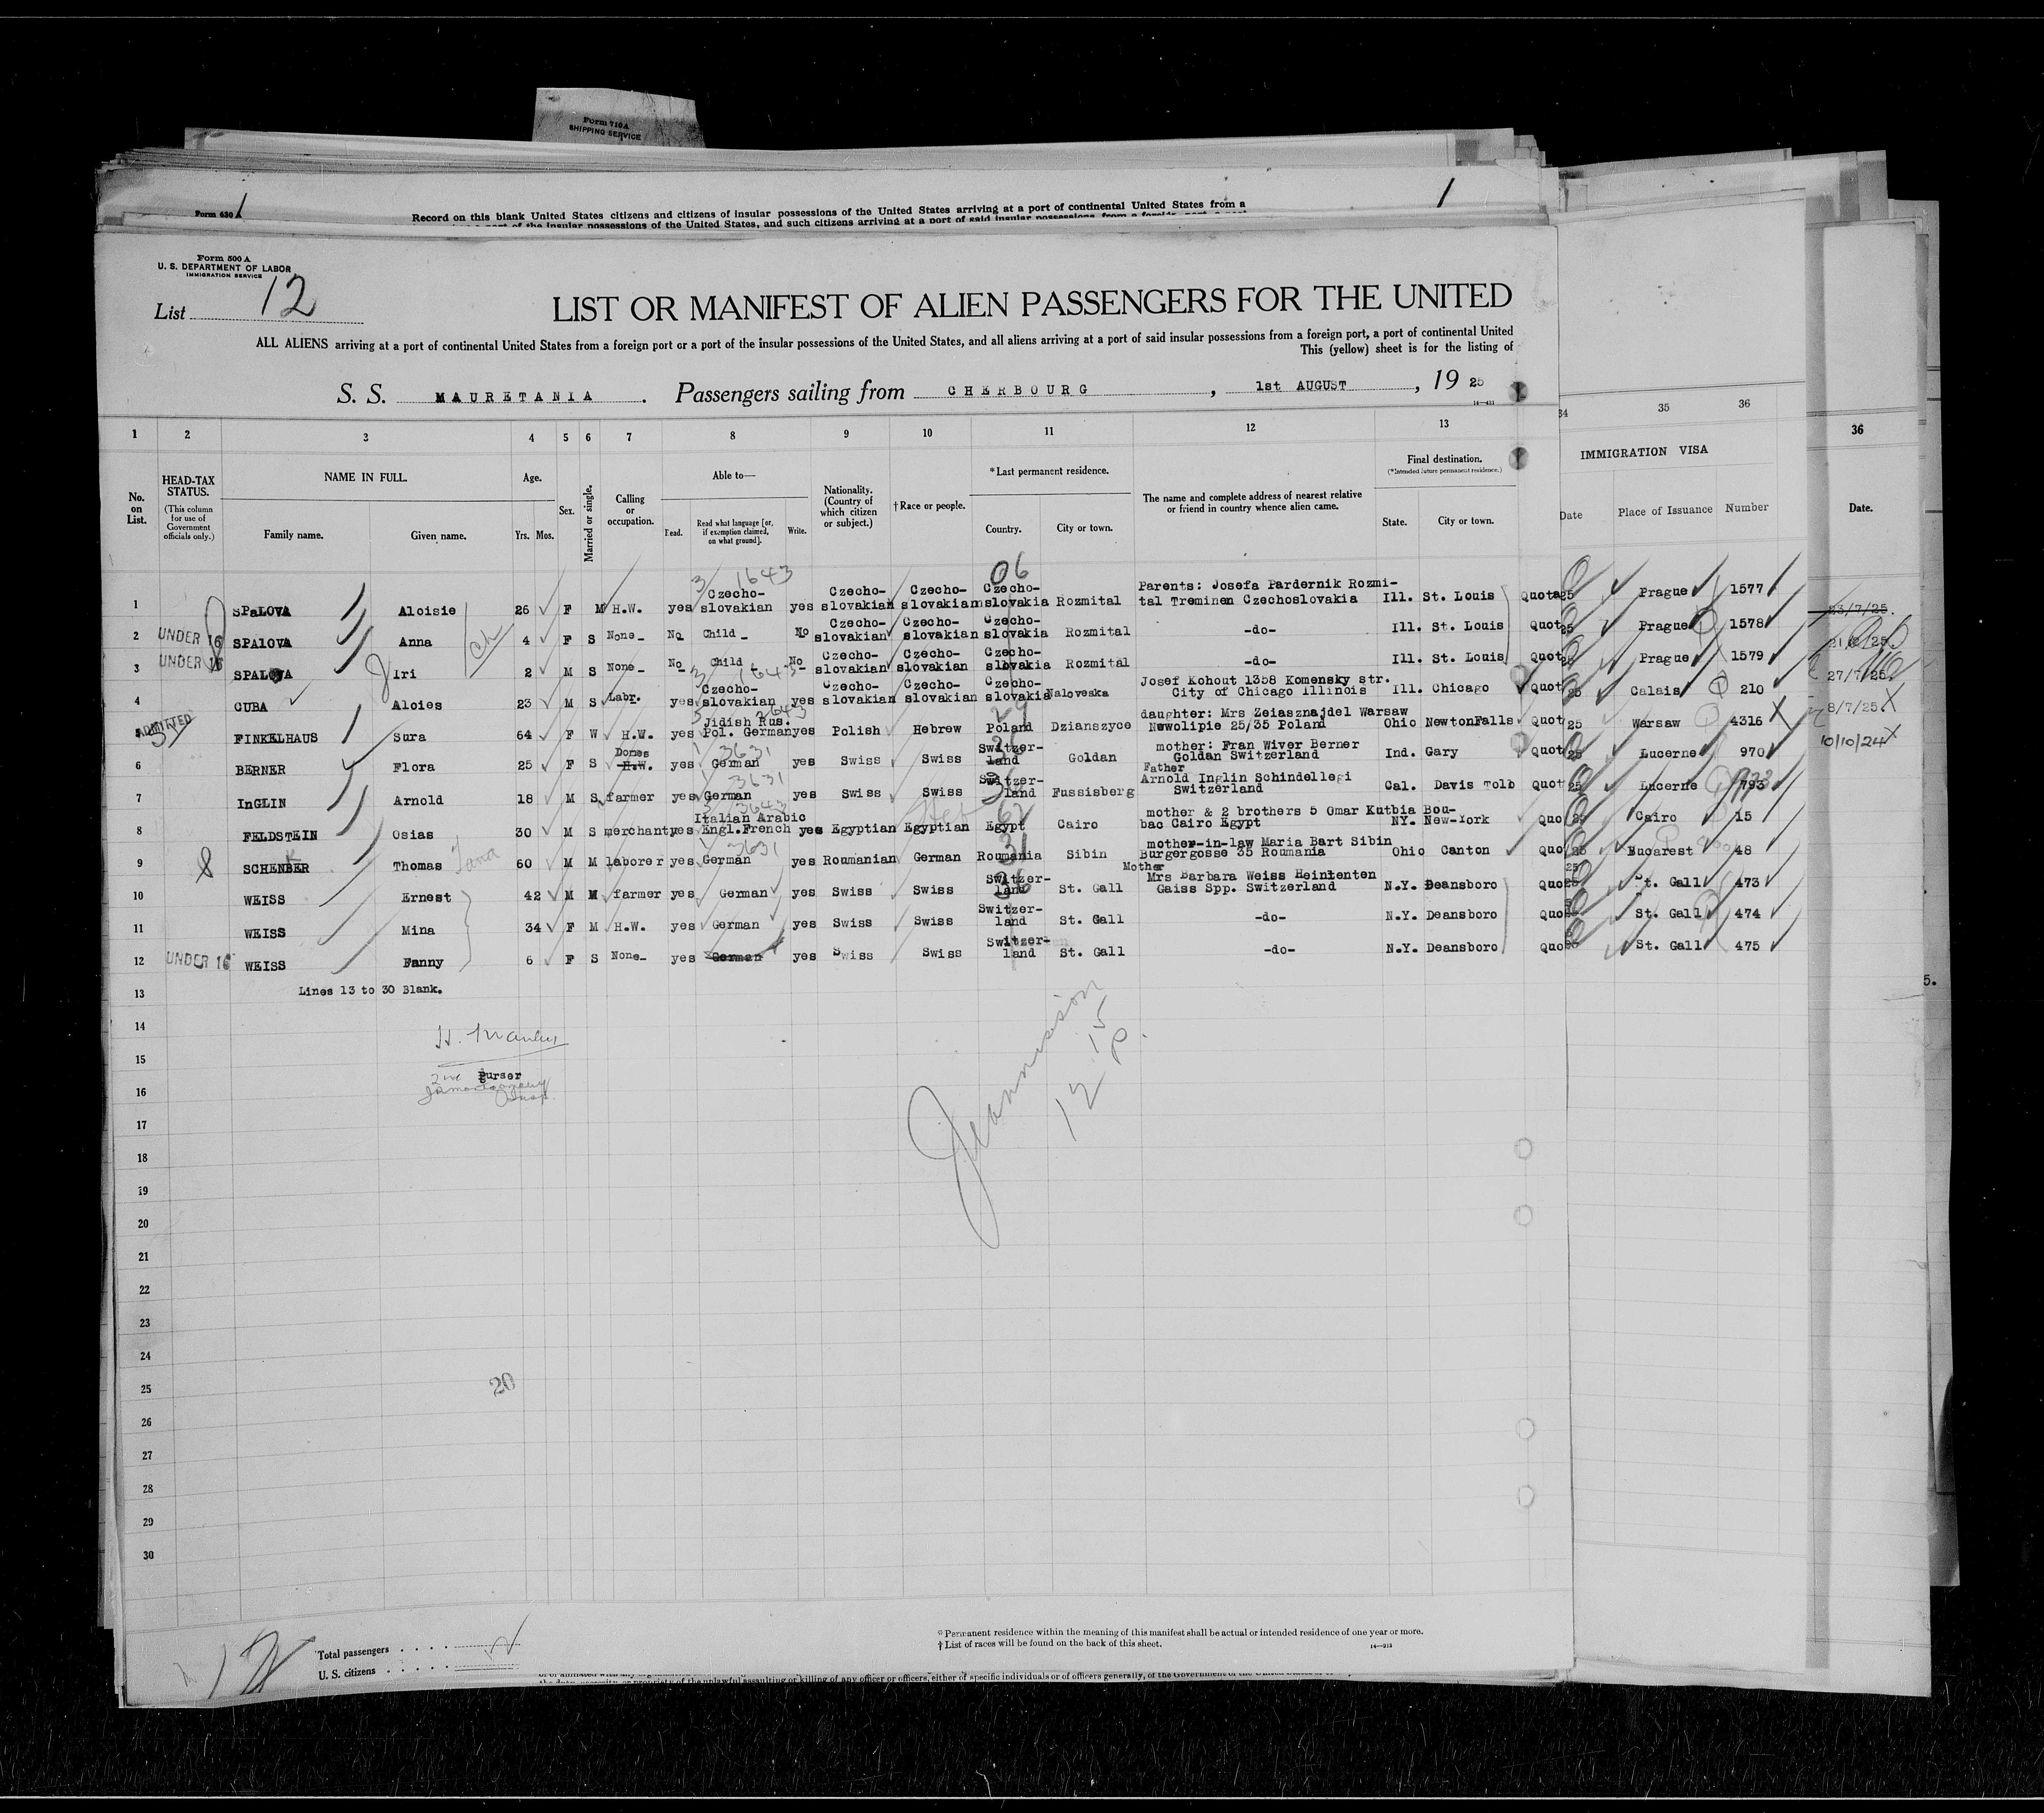 Form 710A
SHIPPING SERVICE
Form 630 1
Record on this blank United States citizens and citizens of insular possessions of the United States arriving at a port of continental United States from a
1
of the insular possessions of the United States, and such citizens arriving at a port of said insular possessions from a foreign port
Form 500 A
U. S. DEPARTMENT OF LABOR
IMMIGRATION SERVICE
List 12
LIST OR MANIFEST OF ALIEN PASSENGERS FOR THE UNITED
ALL ALIENS arriving at a port of continental United States from a foreign port or a port of the insular possessions of the United States, and all aliens arriving at a port of said insular possessions from a foreign port, a port of continental United
This (yellow) sheet is for the listing of
S. S. MAURETANIA. Passengers sailing from CHERBOURG, 1st AUGUST, 19 25
1 2 3 4 5 6 7 8 9 10 11 12 13 34 35 36 36
No. on List.
HEAD-TAX STATUS.
(This column for use of Government officials only.)
NAME IN FULL.
Family name. Given name.
Age.
Yrs. Mos.
Sex.
Married or single.
Calling or occupation.
Able to—
Read. Read what language [or, if exemption claimed, on what ground]. Write.
Nationality. (Country of which citizen or subject.)
† Race or people.
*Last permanent residence.
Country. City or town.
The name and complete address of nearest relative or friend in country whence alien came.
Final destination.
(*Intended future permanent residence.)
State. City or town.
IMMIGRATION VISA
Date Place of Issuance Number
Date.
3 1643 06
1 SPALOVA Aloisie 26 F M H.W. yes Czecho-slovakian yes Czecho-slovakian Czecho-slovakian Czecho-slovakia Rozmital Parents: Josefa Pardernik Rozmi-tal Treminen Czechoslovakia Ill. St. Louis Quota 25 Prague 1577
23/7/25.
2 UNDER 16 SPALOVA Anna 4 F S None- No Child- No Czecho-slovakian Czecho-slovakian Czecho-slovakia Rozmital -do- Ill. St. Louis Quot 25 Prague 1578
3 UNDER 16 SPALOVA Iri 2 M S None- No Child No Czecho-slovakian Czecho-slovakian Czecho-slovakia Rozmital -do- Ill. St. Louis Quot Prague 1579
27/7/25.
3 1643
4 CUBA Aloies 23 M S Labr. yes Czecho-slovakian yes Czecho-slovakian Czecho-slovakian Czecho-slovakia Naloveska Josef Kohout 1358 Komensky str. City of Chicago Illinois Ill. Chicago Quot 25 Calais 210
8/7/25 X
5 ADMITTED FINKELHAUS Sura 64 F W H.W. yes Jidish Rus. Pol. German yes Polish Hebrew Poland Dzianszyce daughter: Mrs Zeiasznajdel Warsaw Newolipie 25/35 Poland Ohio NewtonFalls Quot 25 Warsaw 4316 X
10/10/24 X
1 3631
6 BERNER Flora 25 F S Domes H.W. yes German yes Swiss Swiss Switzer-land Goldan mother: Fran Wiver Berner Goldan Switzerland Ind. Gary Quot 25 Lucerne 970
3631
7 InGLIN Arnold 18 M S farmer yes German yes Swiss Swiss Switzer-land Fussisberg Father Arnold Inglin Schindellegi Switzerland Cal. Davis Tolo Quot 25 Lucerne 793
3643
8 FELDSTEIN Osias 30 M S merchant yes Italian Arabic Engl.French yes Egyptian Egyptian Egypt Cairo mother & 2 brothers 5 Omar Kutbia Bou-bac Cairo Egypt NY. New-York Quo 25 Cairo 15
3631
9 SCHENBER Thomas 60 M M laborer yes German yes Roumanian German Roumania Sibin mother-in-law Maria Bart Sibin Burgergosse 35 Roumania Ohio Canton Quo 25 Bucarest 48
10 WEISS Ernest 42 M M farmer yes German yes Swiss Swiss Switzer-land St. Gall Mother Mrs Barbara Weiss Heintenten Gaiss Spp. Switzerland N.Y. Deansboro Quo 25 St. Gall 473
11 WEISS Mina 34 F M H.W. yes German yes Swiss Swiss Switzer-land St. Gall -do- N.Y. Deansboro Quo St. Gall 474
12 UNDER 16 WEISS Fanny 6 F S None- yes German yes Swiss Swiss Switzer-land St. Gall -do- N.Y. Deansboro Quo St. Gall 475
13 Lines 13 to 30 Blank.
5.
14
15
Purser
16
12 15 P.
17
18
19
20
21
22
23
24
25
20
26
27
28
29
30
12
Total passengers
U. S. citizens
* Permanent residence within the meaning of this manifest shall be actual or intended residence of one year or more.
† List of races will be found on the back of this sheet.
either of specific individuals or of officers generally, of the Government of the United States